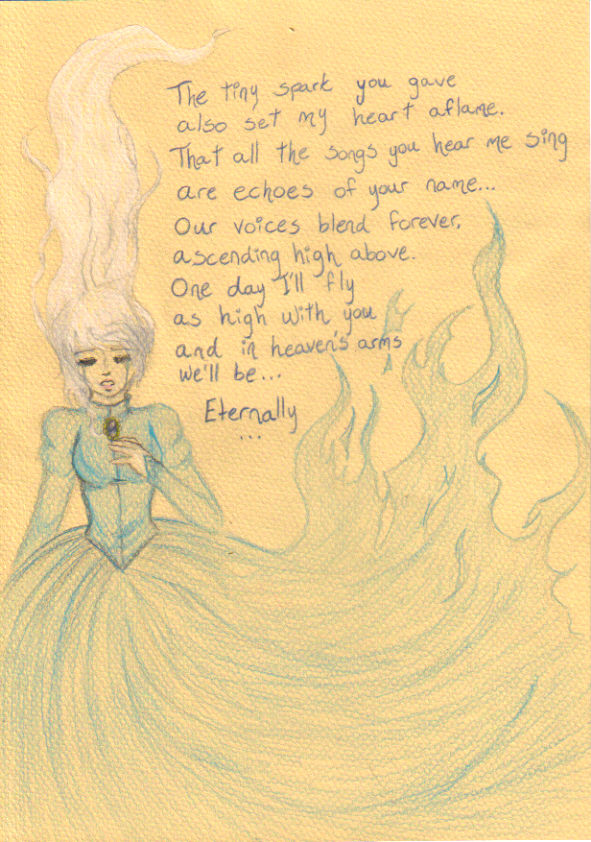 The tiny spark you gave
also set my heart aflame.
That all the songs you hear me sing
are echoes of your name...
Our voices blend forever,
ascending high above.
One day I'll fly
as high with you
and in heaven's arms
we'll be...
Eternally
...